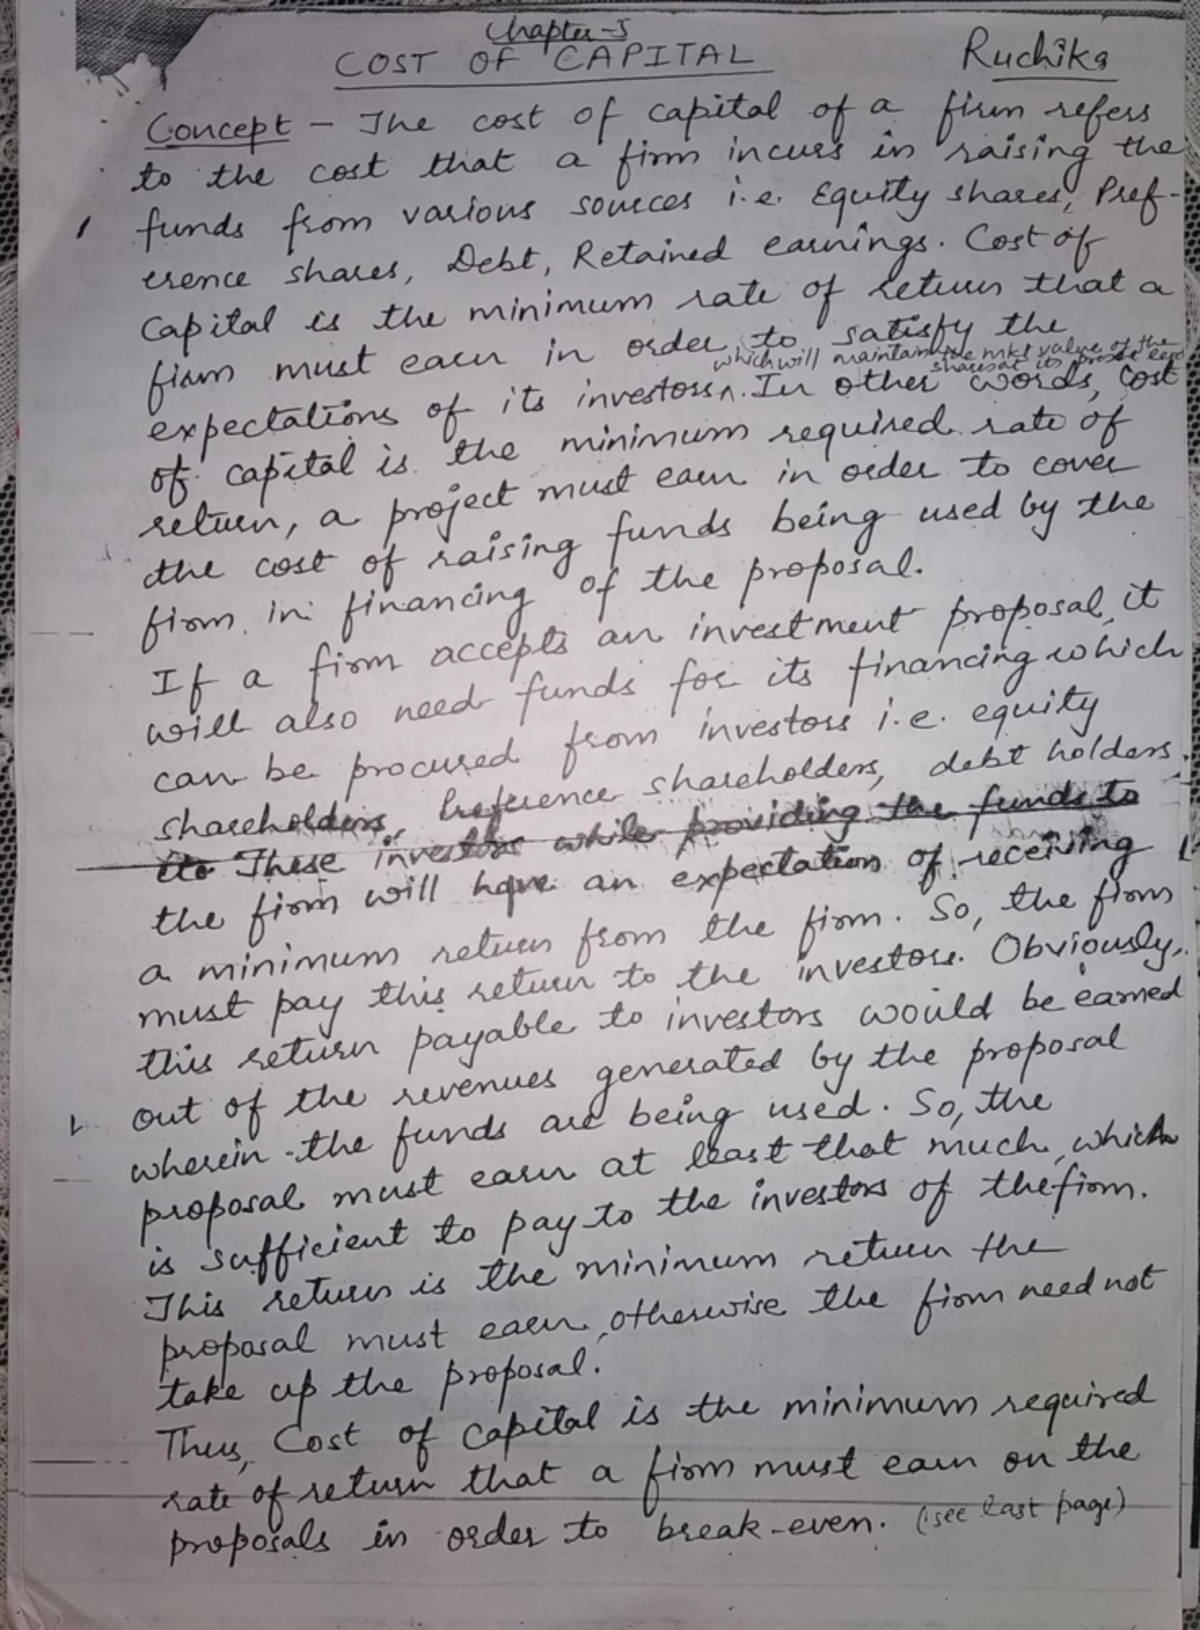 Chapter-5
COST OF CAPITAL
Ruchika
Concept - The cost of capital of a firm refers
to the cost that a firm incurs in raising the
funds from various sources i.e. Equity shares, Pref-
erence shares, Debt, Retained earnings. Cost of
Capital is the minimum rate of return that a
firm must earn in order to satisfy the
which will maintain the mkt value of the
shares at its
expectations of its investors ^. In other words, Cost
of capital is the minimum required rate of
return, a project must earn in order to cover
the cost of raising funds being used by the
firm in financing of the proposal.
If a firm accepts an investment proposal, it
will also need funds for its financing which
can be procured from investors i.e. equity
shareholders, Preference shareholders, debt holders.
These investors while providing the funds to
the firm will have an expectation of receiving
a minimum return from the firm. So, the firm
must pay this return to the investors. Obviously,
this return payable to investors would be earned
out of the revenues generated by the proposal
wherein the funds are being used. So, the
proposal must earn at least that much, which
is sufficient to pay to the investors of the firm.
This return is the minimum return the
proposal must earn, otherwise the firm need not
take up the proposal.
Thus, Cost of Capital is the minimum required
rate of return that a firm must earn on the
proposals in order to break-even. (see last page)